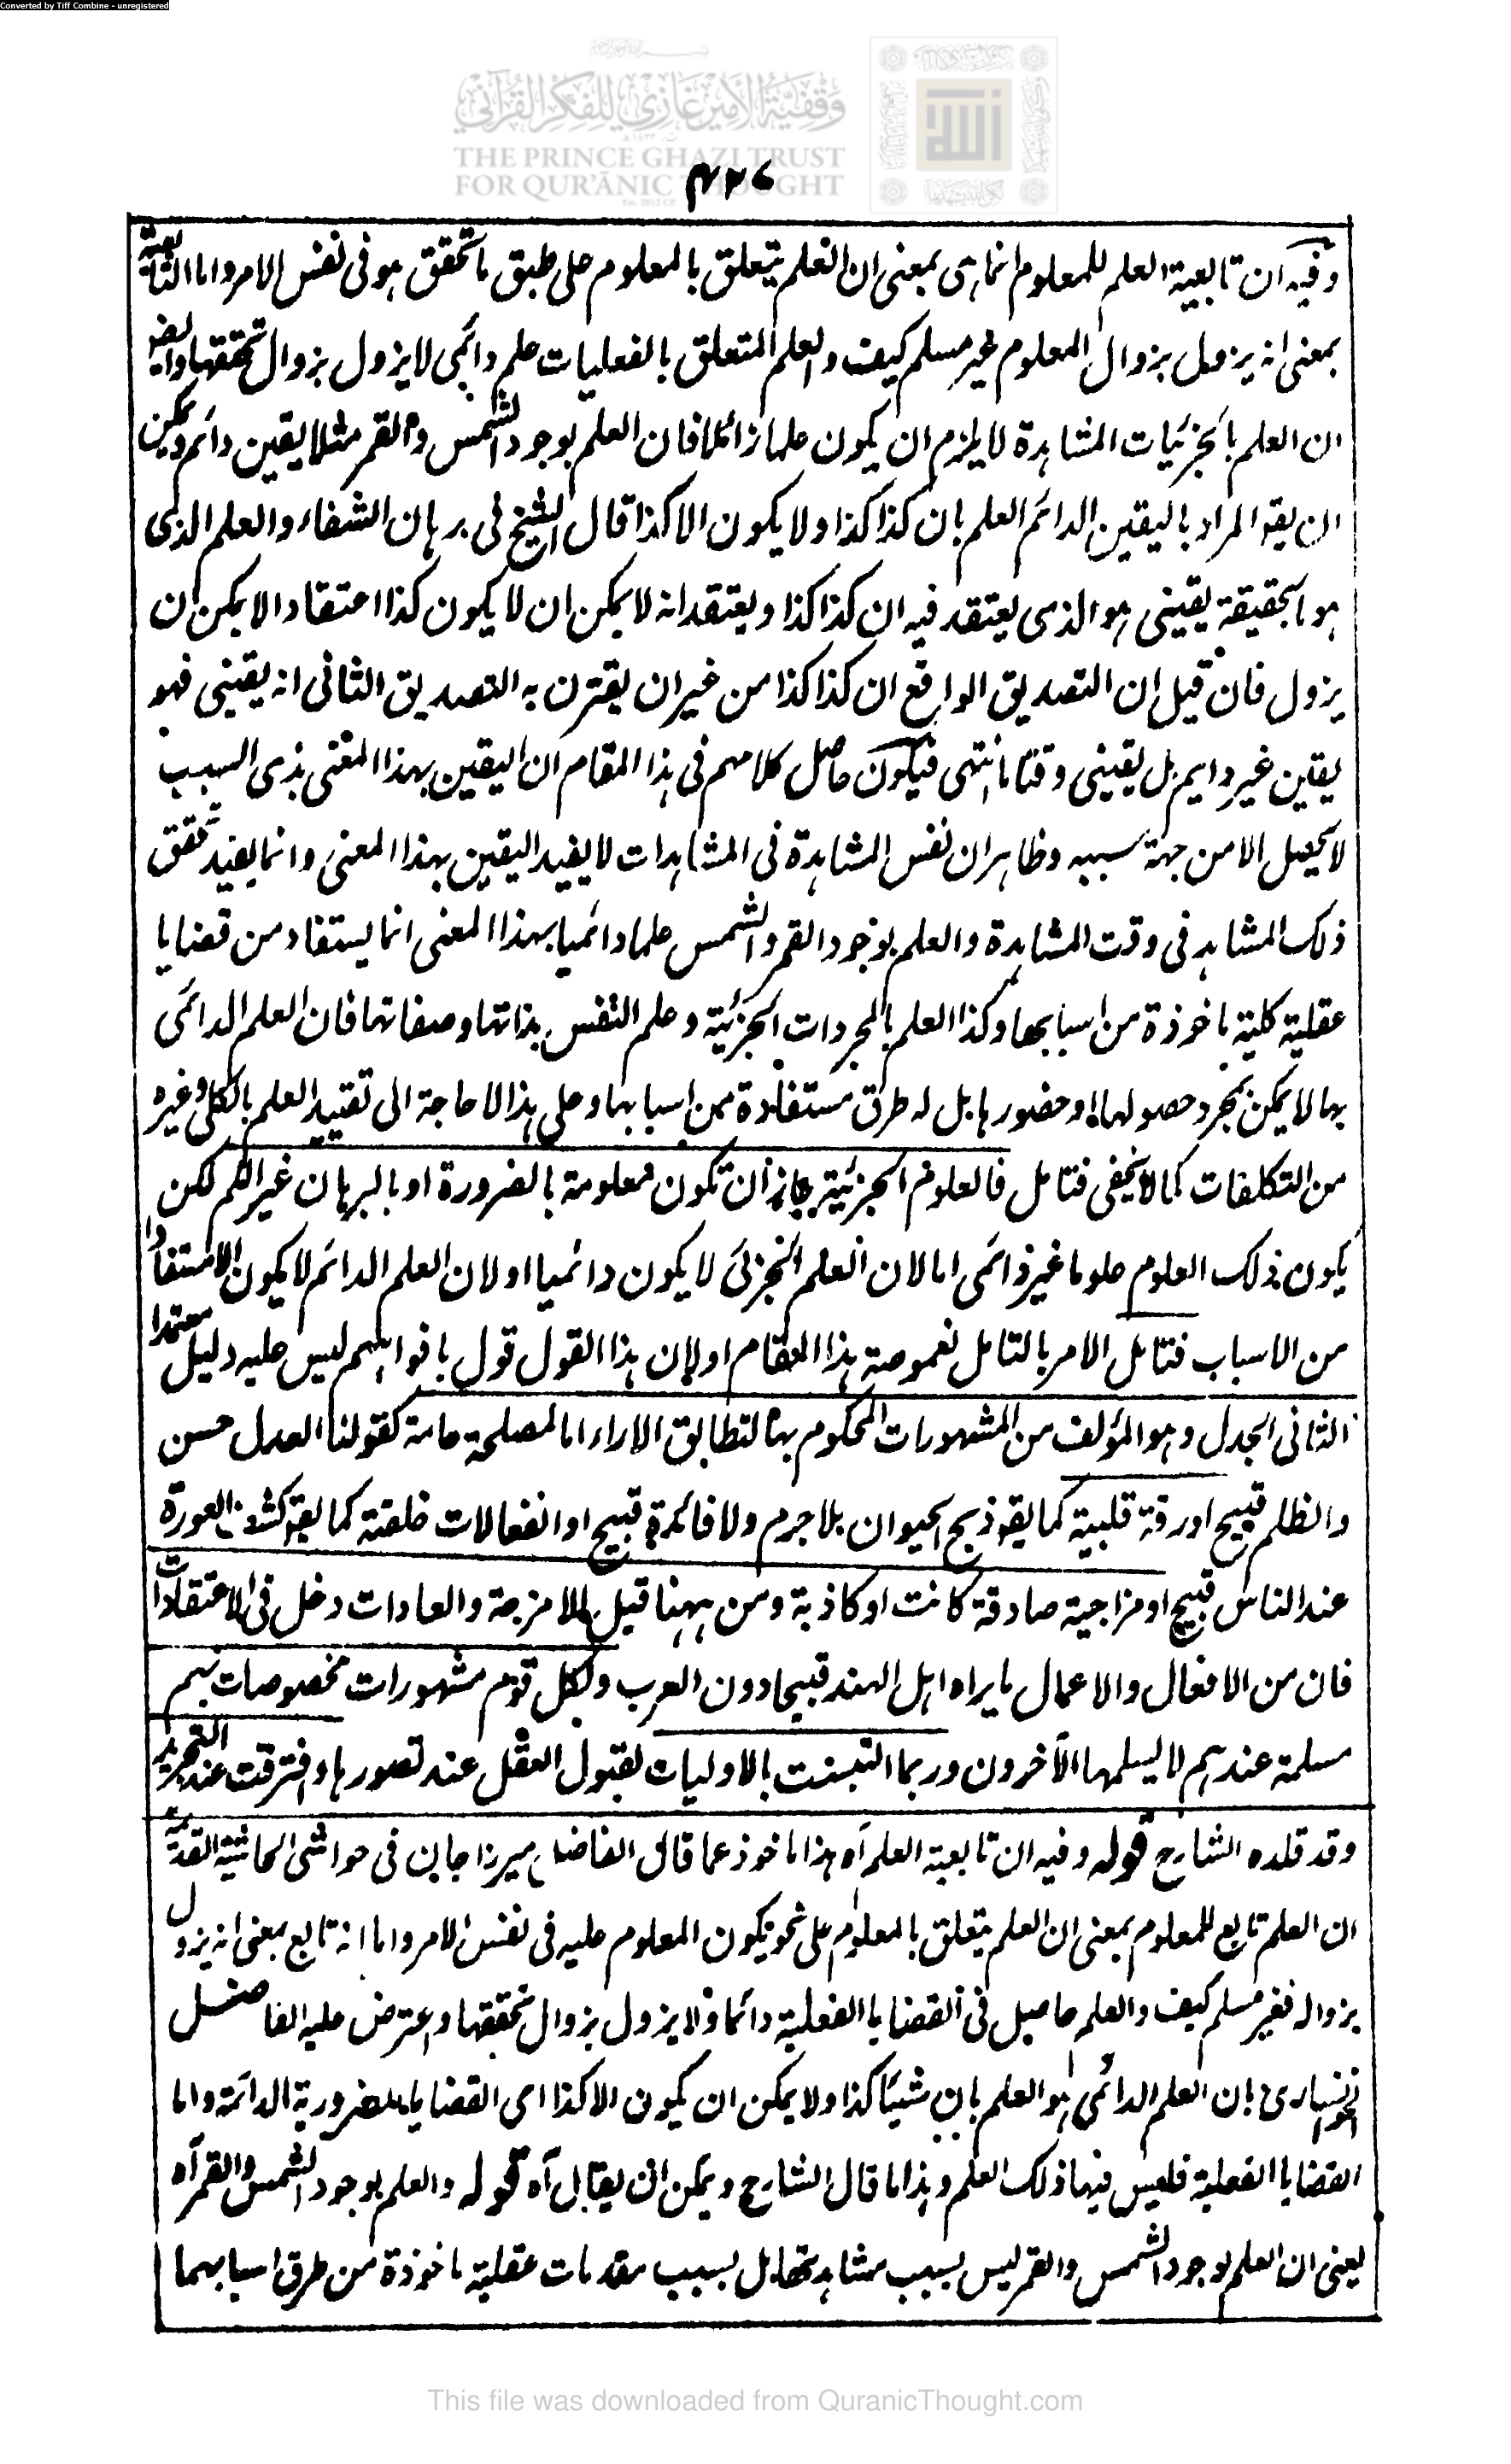 Converted by Tiff Combine - unregistered
وقفية الأمير غازي للفكر القرآني
THE PRINCE GHAZI TRUST
FOR QUR'ĀNIC THOUGHT
٤٢٧
وفيه ان تابعية العلم للمعلوم انما هي بمعنى ان العلم يتعلق بالمعلوم على طبق ما تحقق هو في نفس الامر واما التابعية
بمعنى انه يزول بزوال المعلوم غير مسلم كيف والعلم المتعلق بالفعليات علم دائمي لا يزول بزوال تحققها وايضا
ان العلم بالجزئيات المشاهدة لا يلزم ان يكون علما زائلا فان العلم بوجود الشمس والقمر مثلا يقين دائم ويمكن
ان يقو المراد باليقين الدائم العلم بان كذا كذا ولا يكون الا كذا قال الشيخ في برهان الشفاء والعلم الذي
هو بالحقيقة يقيني هو الذي يعتقد فيه ان كذا كذا ويعتقد انه لا يمكن ان لا يكون كذا اعتقادا لا يمكن ان
يزول فان قيل ان التصديق الواقع ان كذا كذا من غير ان يقترن به التصديق الثاني انه يقيني فهو
يقين غير دايم بل يقيني وقتا ما انتهى فيكون حاصل كلامهم في هذا المقام ان اليقين بهذا المعنى بذي السبب
لا يحصل الا من جهة سببه وظاهر ان نفس المشاهدة في المشاهدات لا يفيد اليقين بهذا المعنى وانما يفيد تحقق
ذلك المشاهد في وقت المشاهدة والعلم بوجود القمر والشمس علما دائميا بهذا المعنى انما يستفاد من قضايا
عقلية كلية ماخوذة من اسبابها وكذا العلم بالمجردات الجزئية وعلم النفس بذاتها وصفاتها فان العلم الدائمي
بها لا يمكن بمجرد حصولها او حضورها بل له طرق مستفادة من اسبابها وعلى هذا لا حاجة الى تقييد العلم بالكلي وغيره
من التكلفات كما لا يخفى فتامل فالعلوم الجزئية جاز ان تكون معلومة بالضرورة او بالبرهان غير اللم لكن
يكون ذلك العلوم علوما غير دائمي اما لان العلم الجزئي لا يكون دائميا او لان العلم الدائم لا يكون الا مستفادا
من الاسباب فتامل الامر بالتامل لغموصة هذا المقام او لان هذا القول قول بافواههم ليس عليه دليل معتمدا
الثاني الجدل وهو المؤلف من المشهورات المحكوم بها لتطابق الاراء اما لمصلحة عامة كقولنا العدل حسن
والظلم قبيح او رقة قلبية كما يقو ذبح الحيوان بلا جرم ولا فائدة قبيح او انفعالات خلقية كما يقو كشف العورة
عند الناس قبيح او مزاجية صادقة كانت او كاذبة ومن ههنا قيل للامزجة والعادات دخل في الاعتقادات
فان من الافعال والاعمال ما يراه اهل الهند قبيحا دون العرب ولكل قوم مشهورات مخصوصات بهم
مسلمة عندهم لا يسلمها الآخرون وربما التبست بالاوليات لقبول العقل عند تصورها وافترقت عند التجريد
وقد قلده الشارح قوله وفيه ان تابعية العلم آه هذا ماخوذ عما قال الفاضل ميرزا جان في حواشي الحاشية القديمة
ان العلم تابع للمعلوم بمعنى ان العلم يتعلق بالمعلوم على نحو يكون المعلوم عليه في نفس الامر واما انه تابع بمعنى انه يزول
بزواله فغير مسلم كيف والعلم حاصل في القضايا الفعلية دائما ولا يزول بزوال تحققها واعترض عليه الفاضل
الخوانساري بان العلم الدائمي هو العلم بان شيئا كذا ولا يمكن ان يكون الا كذا اي القضايا الضرورية الدائمة واما
القضايا الفعلية فليس فيها ذلك العلم وهذا ما قال الشارح ويمكن ان يقال آه قوله والعلم بوجود الشمس والقمر آه
يعني ان العلم بوجود الشمس والقمر ليس بسبب مشاهدتهما بل بسبب مقدمات عقلية ماخوذة من طرق اسبابهما
This file was downloaded from QuranicThought.com